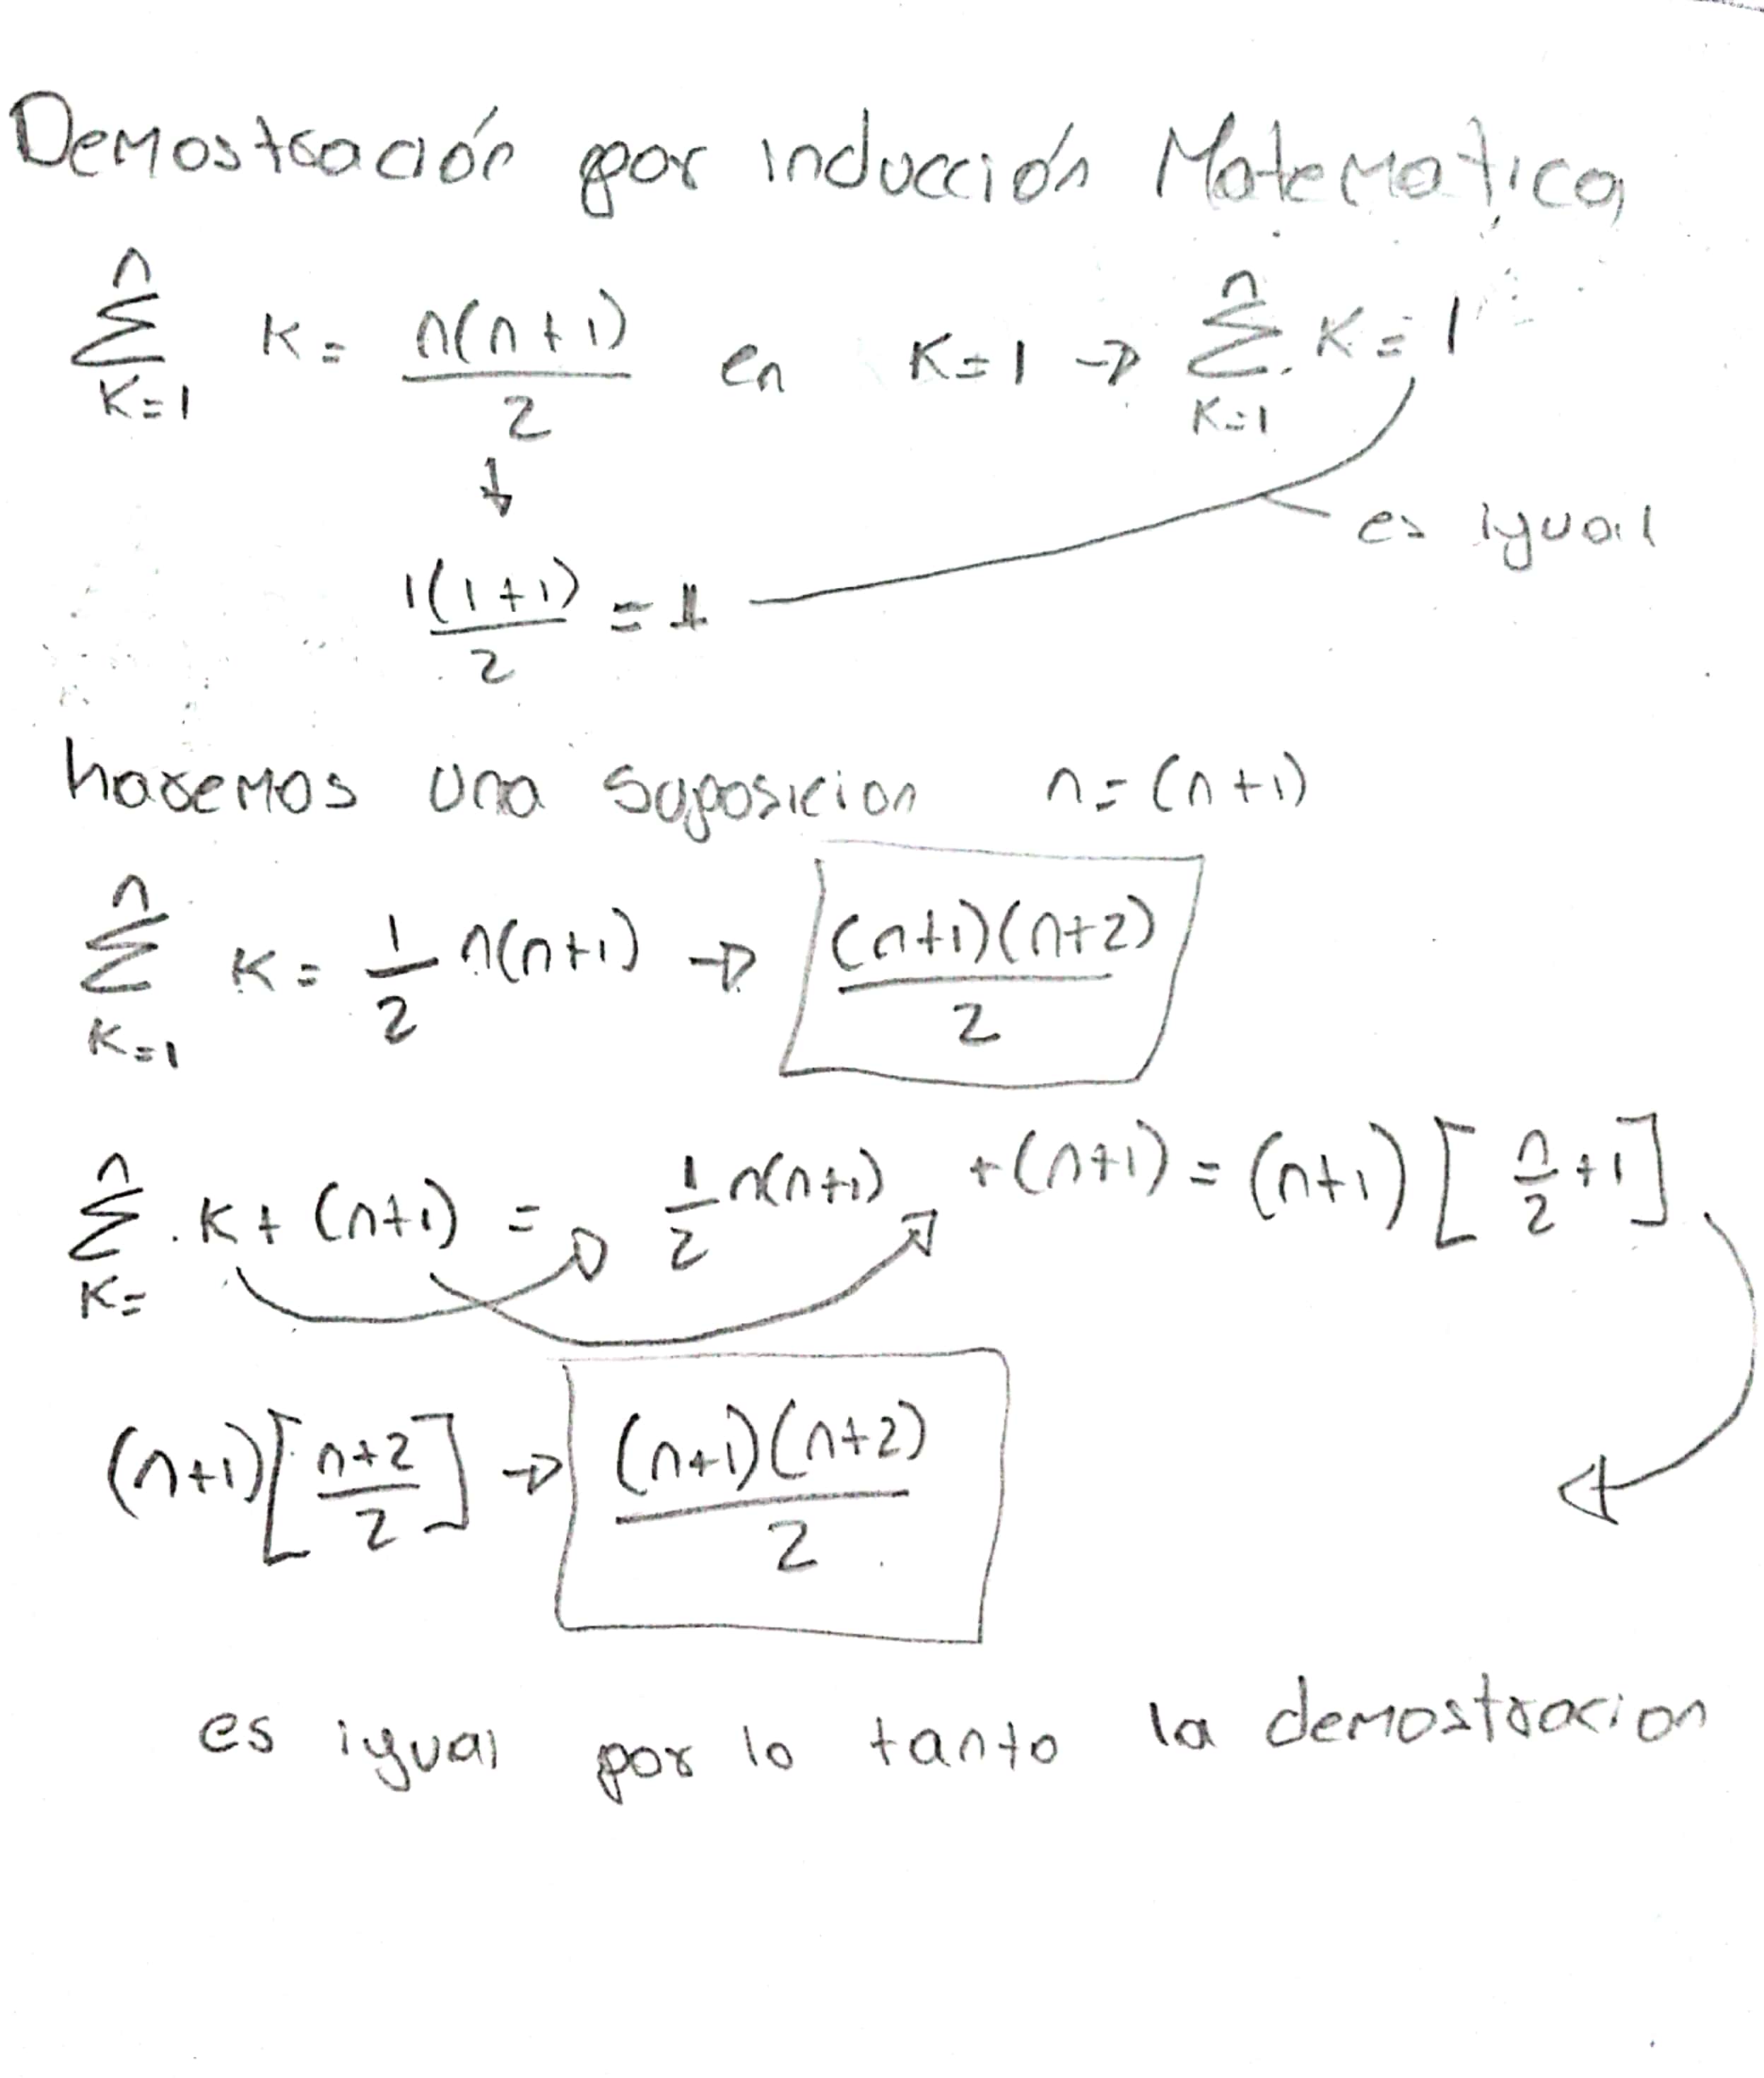 Demostración por inducción Matematica
∑_{K=1}^{n} K = n(n+1)/2 en K=1 → ∑_{K=1}^{n} K = 1
↓
1(1+1)/2 = 1 es igual
haremos una suposicion n=(n+1)
∑_{K=1}^{n} K = 1/2 n(n+1) → (n+1)(n+2)/2
∑_{K=}^{n} K + (n+1) = 1/2 n(n+1) + (n+1) = (n+1)[n/2 + 1]
(n+1)[n+2/2] → (n+1)(n+2)/2
es igual por lo tanto la demostracion